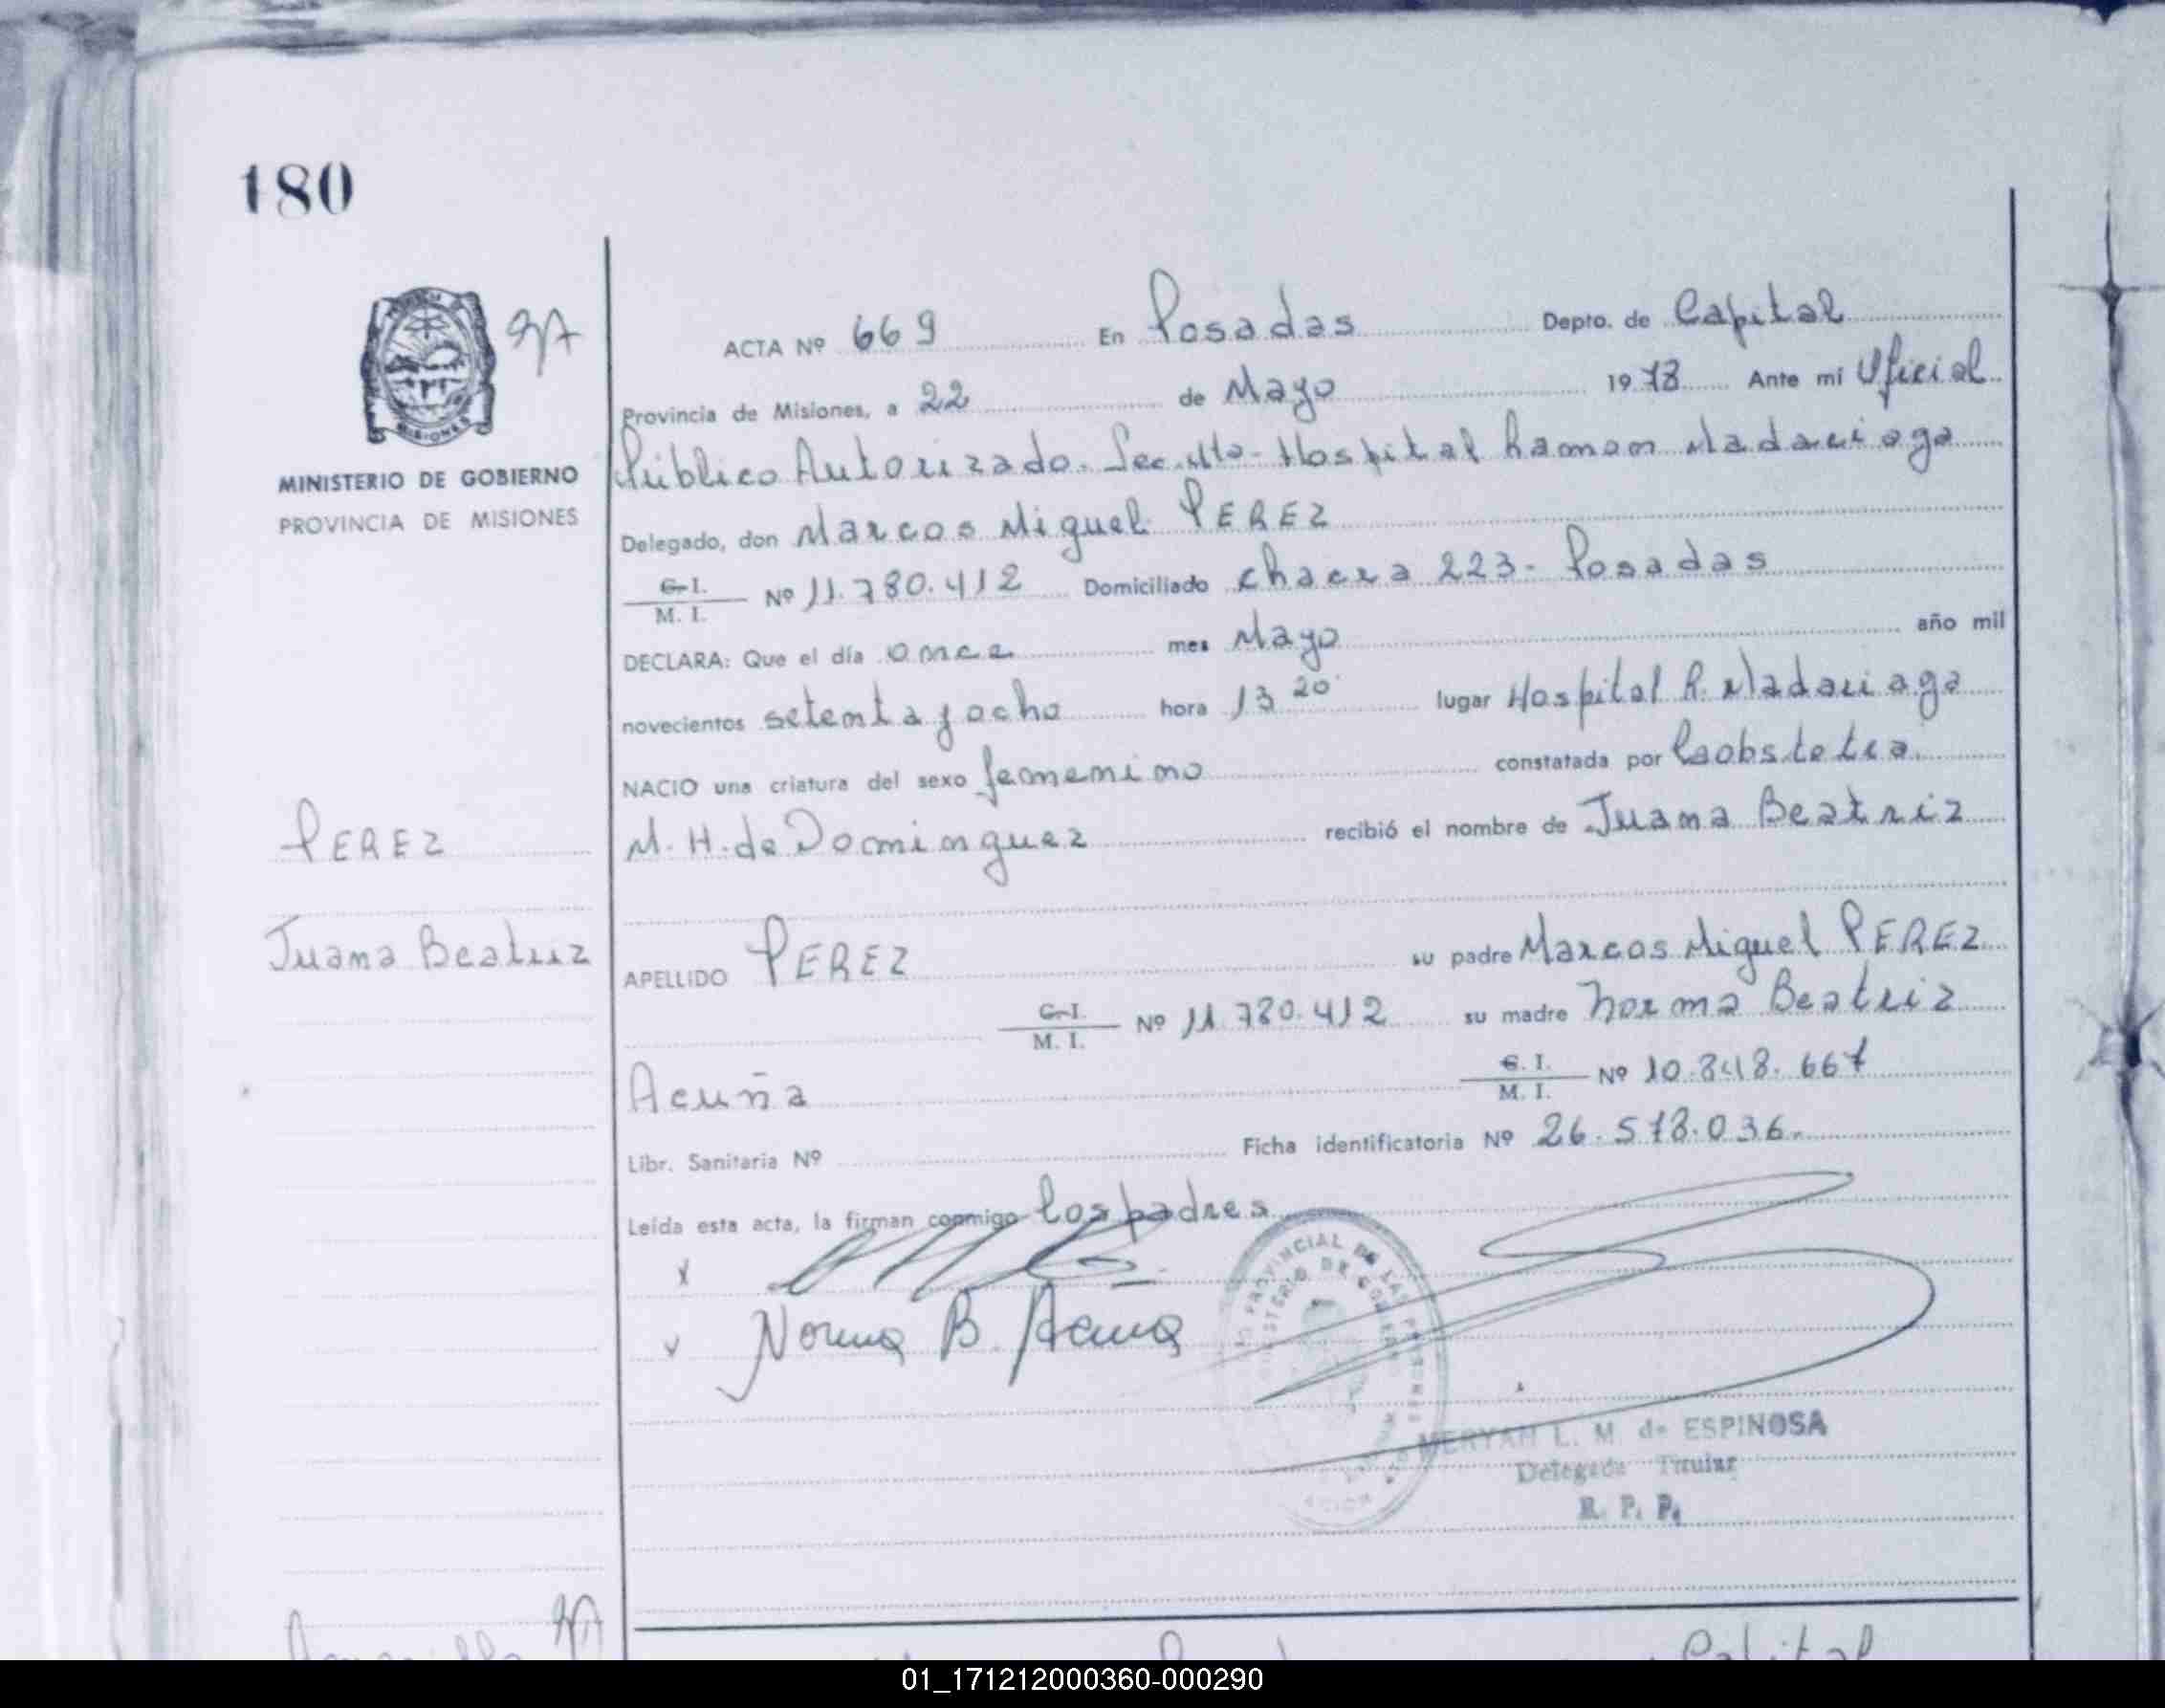 180
MINISTERIO DE GOBIERNO
PROVINCIA DE MISIONES
PEREZ
Juana Beatriz
ACTA Nº 669 En Posadas Depto. de Capital
Provincia de Misiones, a 22 de Mayo 1978 Ante mi Oficial
Público Autorizado. Hospital Ramon Madariaga
Delegado, don Marcos Miguel PEREZ
C. I. M. I. Nº 11.780.412 Domiciliado chacra 223- Posadas
DECLARA: Que el día once mes Mayo año mil
novecientos setenta y ocho hora 13 20 lugar Hospital R. Madariaga
NACIO una criatura del sexo femenino constatada por la obstetra
M. H. de Dominguez recibió el nombre de Juana Beatriz
APELLIDO PEREZ su padre Marcos Miguel PEREZ
C. I. M. I. Nº 11.780.412 su madre Norma Beatriz
Acuña C. I. M. I. Nº 10.848.667
Libr. Sanitaria Nº Ficha identificatoria Nº 26.578.036.
Leída esta acta, la firman conmigo los padres
Norma B. Acuña
MERYAM L. M. de ESPINOSA
Delegada Titular
R. P. P.
01_171212000360-000290